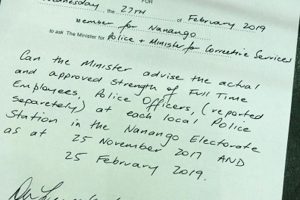 FOR
Wednesday the 27TH of February 2019
Member for Nanango
to ask The Minister for Police + Minister for Corrective Services
Can the Minister advise the actual
and approved strength of Full Time
Employees, Police Officers, (reported
separetely) at each local Police
Station in the Nanango Electorate
as at 25 November 2017 AND
25 February 2019.